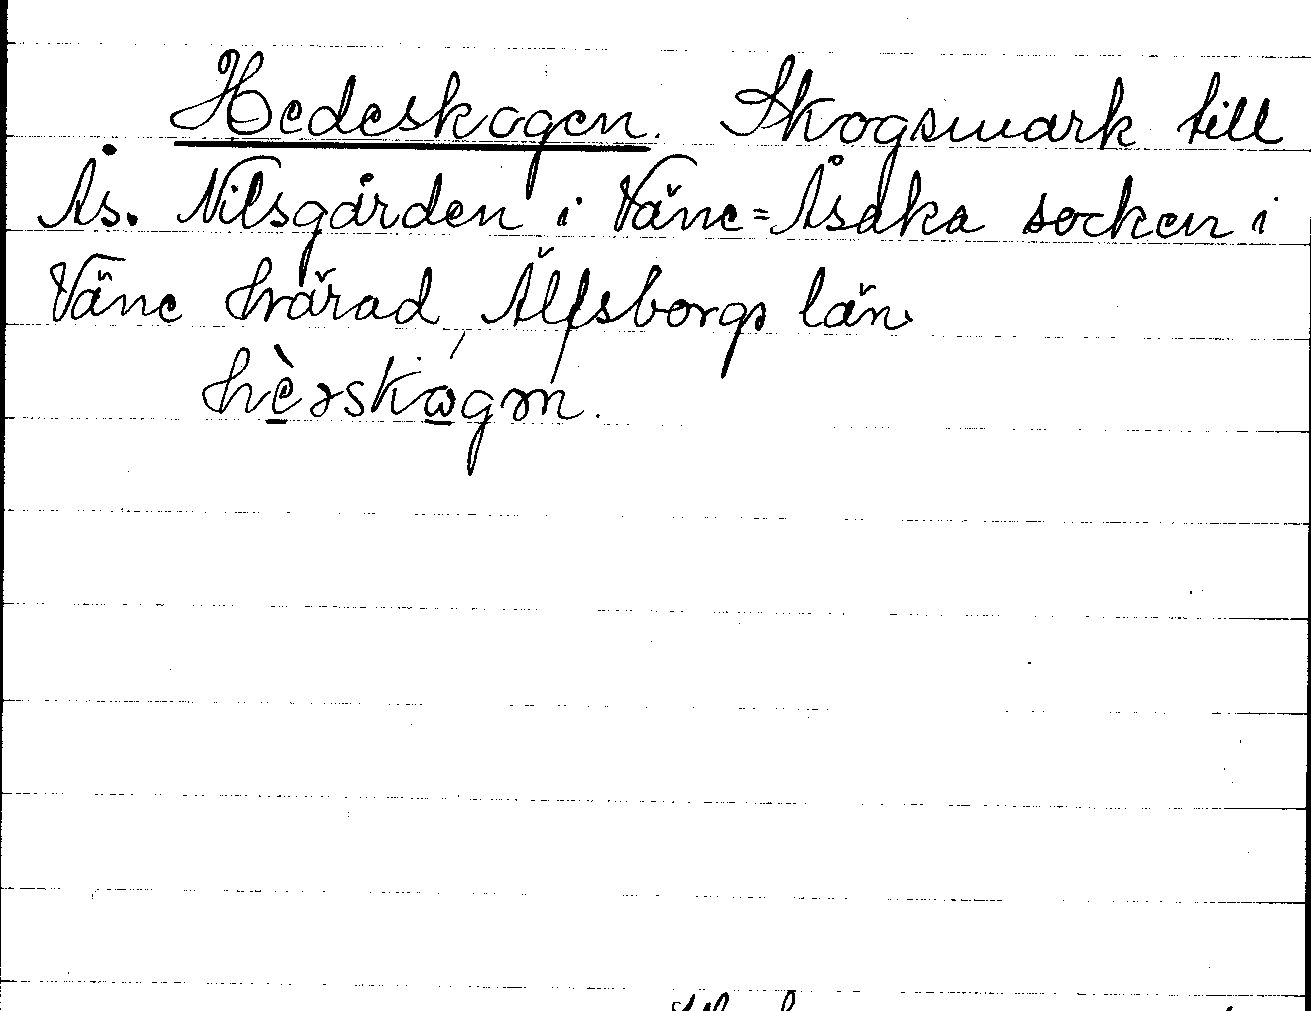 Hedeskogen. Skogsmark till
Ås. Nilsgården i Väne=Åsaka socken i
Väne härad, Älfsborgs län